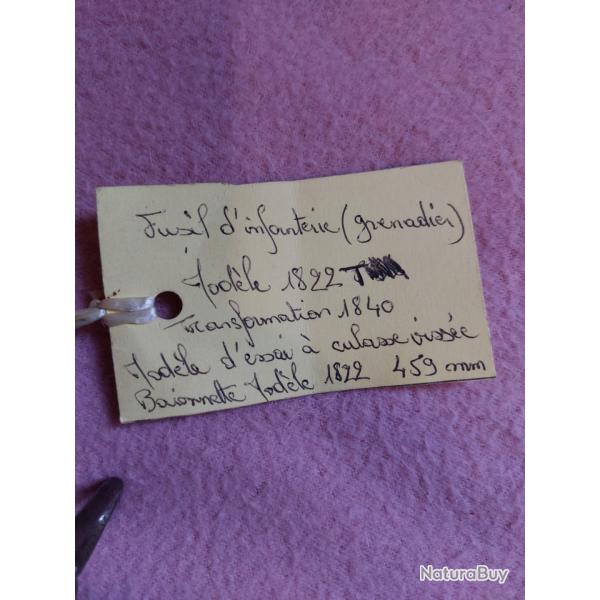 Fusil d'infanterie (grenadier)
Modèle 1822 T
Transformation 1840
Modèle d'essai à culasse vissée
Baionnette Modèle 1822 459 mm
NaturaBuy